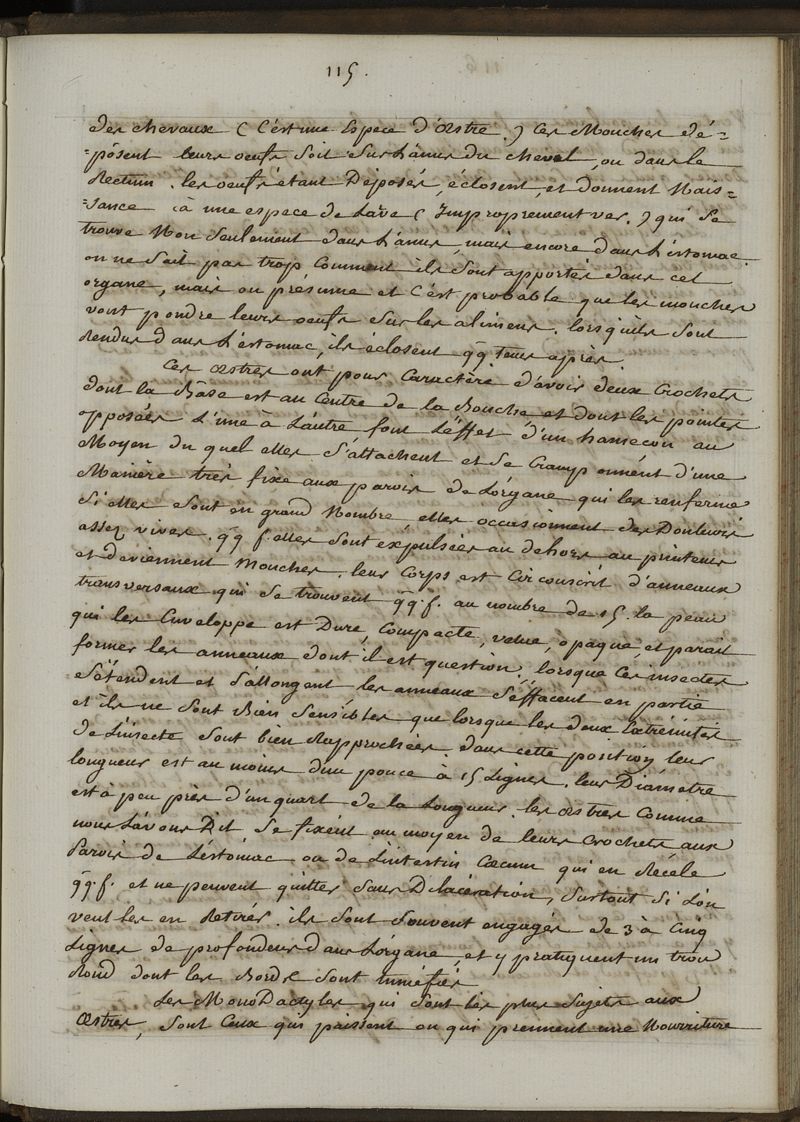 115.
des chevaux ( C'ést une Espece d'Œstre. ) Ces Mouches dé=
=pôsent leurs oeufs Soit Sur L'ânus du cheval, ou dans le
Rectum. les oeufs étant Déposés, éclosent, et donnent Nais=
=sance à une espece de Larve ( Improprement ver. ) qui Se
trouve Non Seulement dans L'anus, mais encore dans L'éstomac.
on ne Sait pas trop Comment ils Sont apportés dans cet
organe, mais on présume et C'ést probable que les mouches
vont pondre leurs oeufs Sur les alimens. lorsqu'ils Sont
Rendus dans L'éstomac, ils éclosent q̄q tems après.
Ces Œstres ont pour Caractère d'avoir deux Crochets
dont la Bâse est au Centre de la Bouche et dont les pointes
opposées L'une à L'autre font L'éffet d'un hameçon au
Moyen du quel elles S'attachent et Se Cramponnént d'une
Manière très fixe aux parois de L'órgane qui les renferme
Si elles Sont en grand Nombre, elles occasionnent des Douleurs
assez vives. q̄q f. elles Sont expulsées au dehors au printems
et deviennent Mouches. leur Corps est Circonscrit d'anneaux
transversaux qui Se trouvent q̄q f. au nombre de 15. la peau
qui les Enveloppe est Dure, Compacte, velue, opaque, et parait
former les anneaux dont il est question, lorsque Ces insectes
S'étendent et S'allongent les anneaux S'éffacent en partie
et ils ne Sont Bien Sensibles que lorsque les deux Extrémités
de L'insecte Sont bien Rapprochées. dans cette position leur
longueur est au moins d'un pouce à 15 Lignes. leur Diamètre
est à peu près d'un quart de la Longueur. les Œstres Comme
nous L'avons Dit Se fixént au moyen de leurs Crochets aux
Parois de L'éstomac ou de L'intestin Cœcum qui en Récele
q̄q f. et ne peuvent quitter Sans Dilacération, Surtout Si L'on
veut les en Retirér. ils Sont Souvent engagés de 3 à Cinq
Lignes de profondeur dans L'órgane, et y pratiquent un trou
Rond dont les Bords Sont tuméfiés
Les MonoDactyles qui Sont les plus Sujets aux
Œstres, Sont Ceux qui paissent ou qui prennent une Nourriture